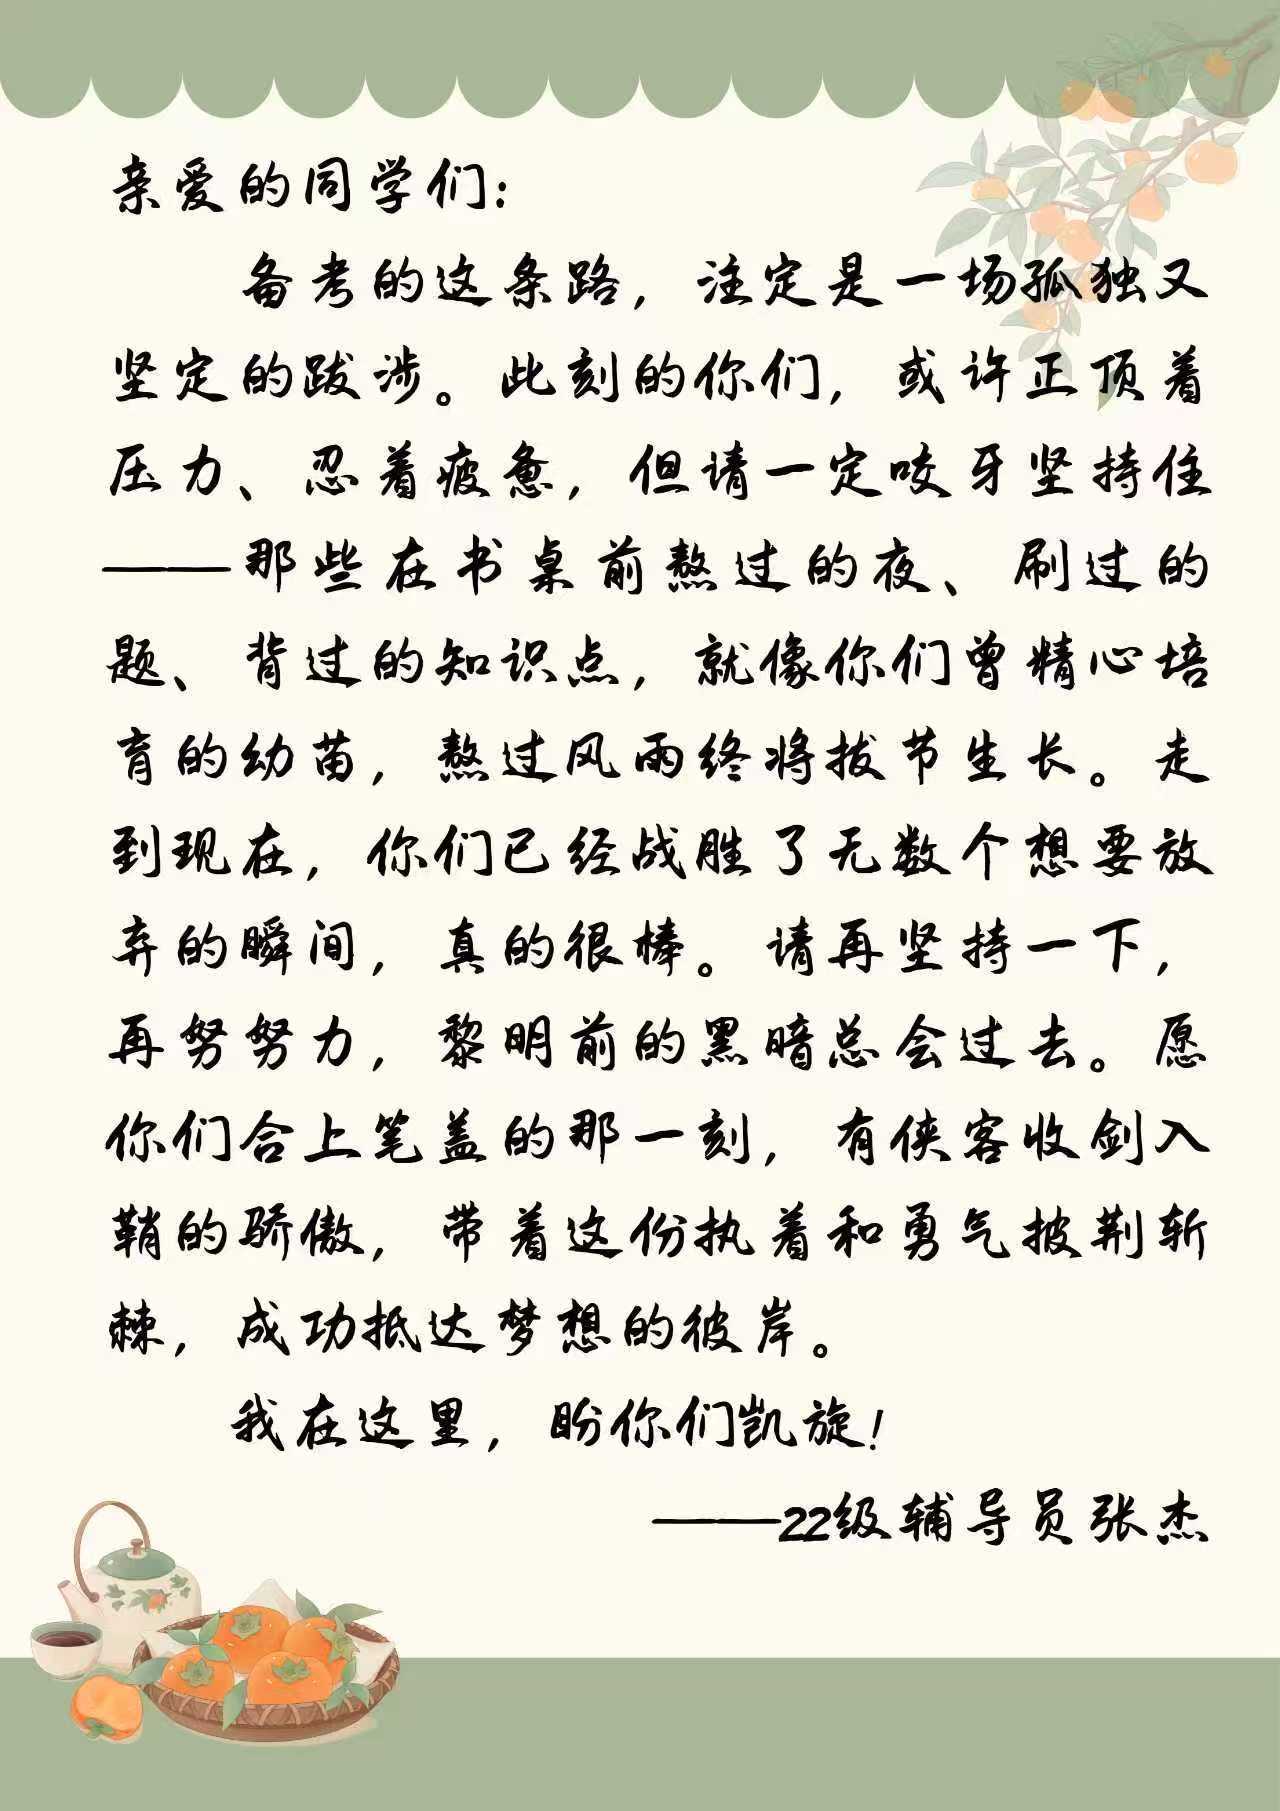 亲爱的同学们：
备考的这条路，注定是一场孤独又
坚定的跋涉。此刻的你们，或许正顶着
压力、忍着疲惫，但请一定咬牙坚持住
——那些在书桌前熬过的夜、刷过的
题、背过的知识点，就像你们曾精心培
育的幼苗，熬过风雨终将拔节生长。走
到现在，你们已经战胜了无数个想要放
弃的瞬间，真的很棒。请再坚持一下，
再努努力，黎明前的黑暗总会过去。愿
你们合上笔盖的那一刻，有侠客收剑入
鞘的骄傲，带着这份执着和勇气披荆斩
棘，成功抵达梦想的彼岸。
我在这里，盼你们凯旋！
——22级辅导员张杰